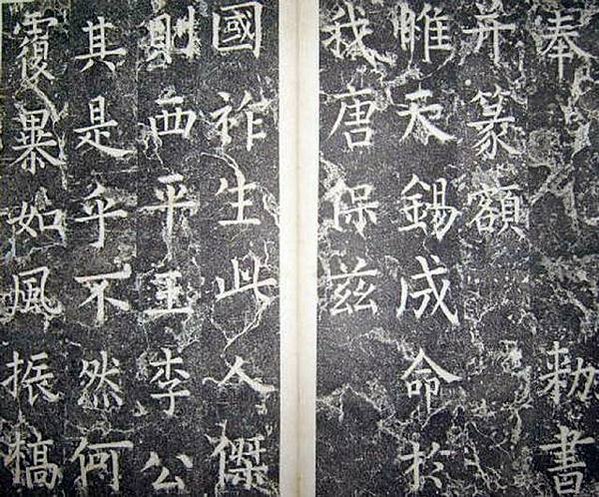 奉勅書
并篆額
惟天錫成命於
我唐保茲
國祚生此人傑
則西平王李公
其是乎不然何
覆暴如風振槁